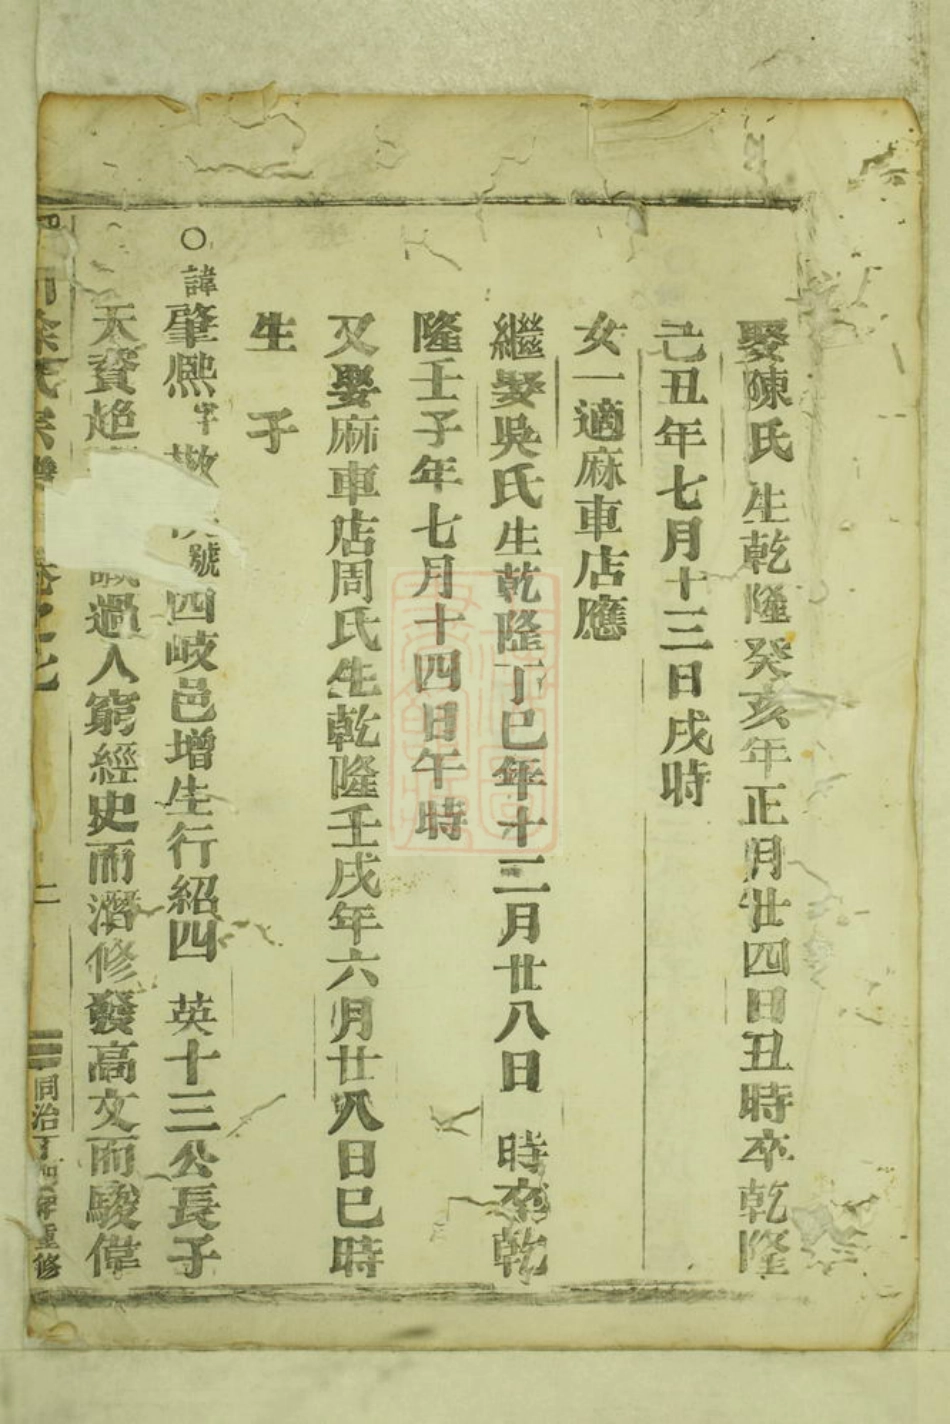 娶陳氏生乾隆癸亥年正月廿四日丑時卒乾隆
己丑年七月十三日戌時
女一適麻車店應
繼娶吳氏生乾隆丁巳年十二月廿八日 時卒乾
隆壬子年七月十四日午時
又娶麻車店周氏生乾隆壬戌年六月廿八日巳時
生 子
○諱肇熙字 號四岐邑增生行紹四 英十三公長子
天資 過人窮經史而潛修發高文而駿偉
徐氏宗譜 卷之七 二 同治丁卯年重修